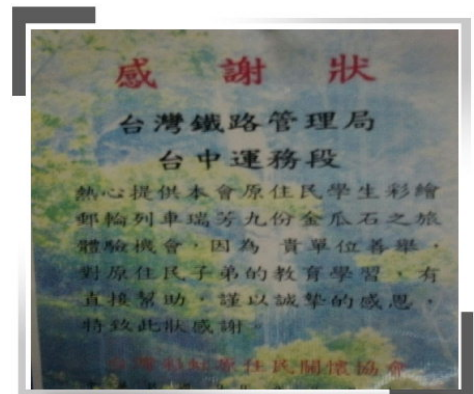 感 謝 狀
台灣鐵路管理局
台中運務段
熱心提供本會原住民學生彩繪
郵輪列車瑞芳九份金瓜石之旅
體驗機會，因為 貴單位善舉，
對原住民子弟的教育學習，有
直接幫助，謹以誠摯的感恩，
特致此狀感謝。
台灣彩虹原住民關懷協會